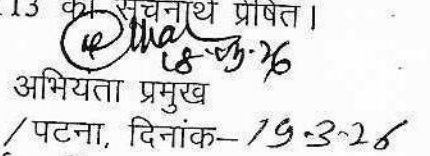 13 को सूचनार्थ प्रेषित।
18.03.26
अभियंता प्रमुख
/ पटना, दिनांक– 19.3.26